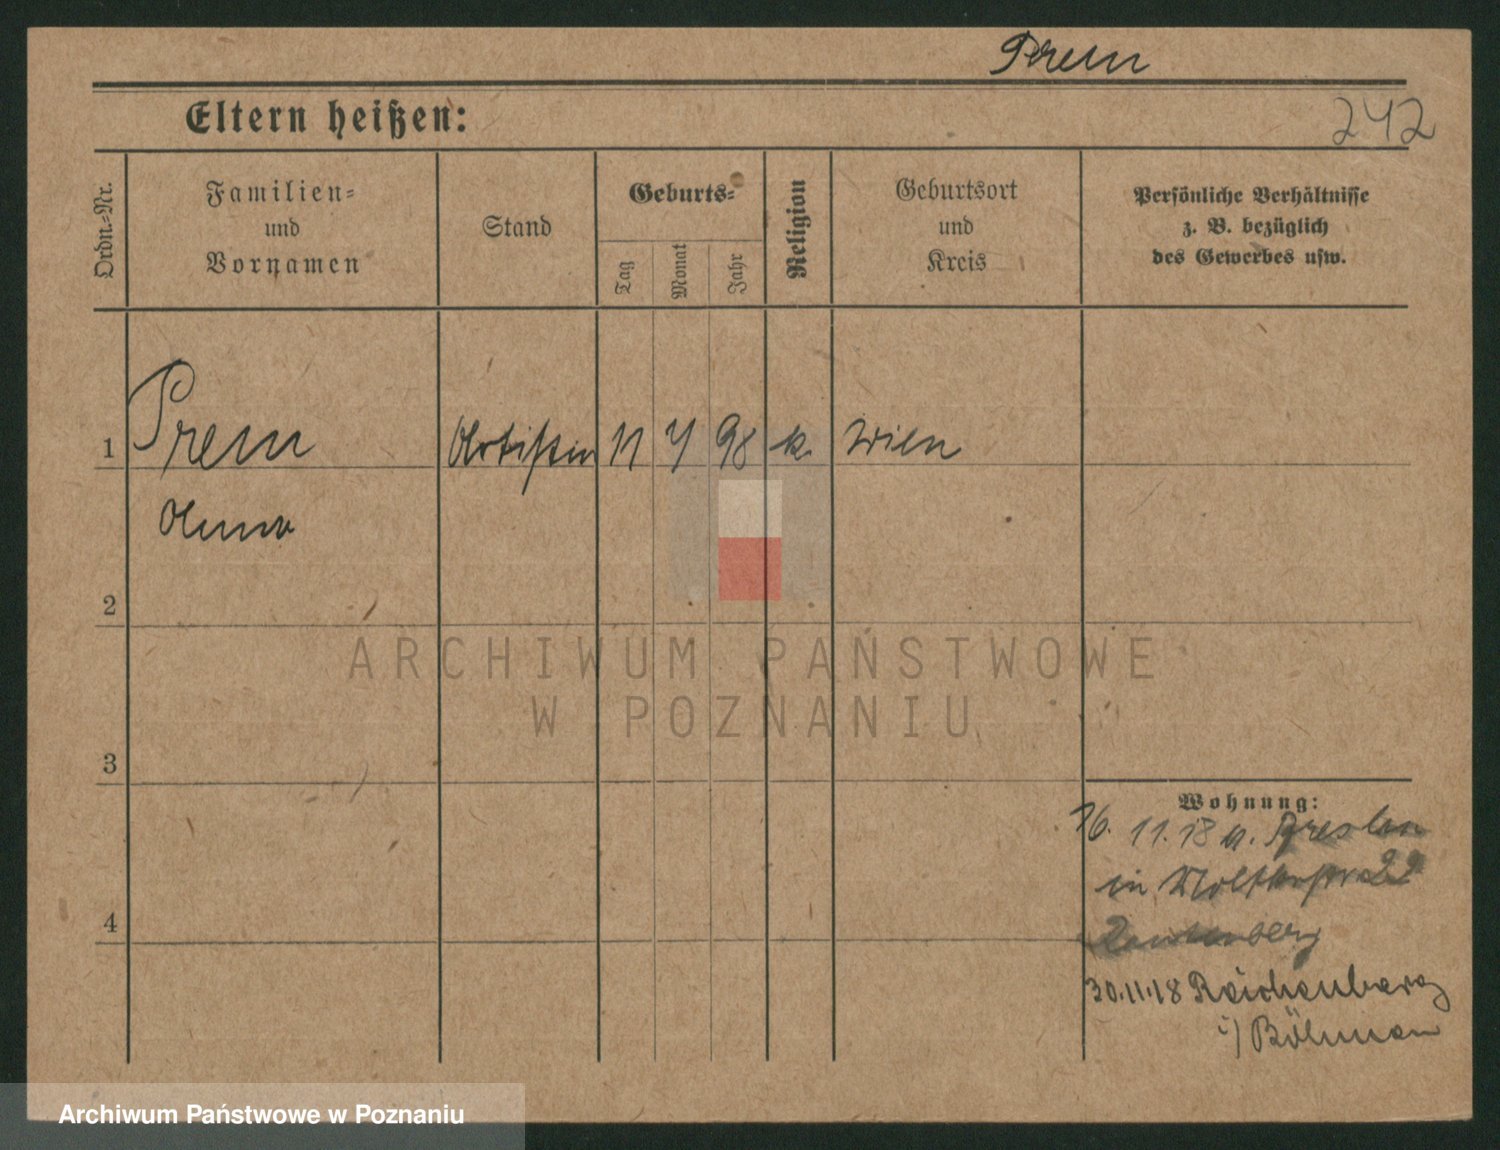 Prem
Eltern heißen:
242
Ordn.-Nr.
Familien-
und
Vornamen
Stand
Geburts-
Tag
Monat
Jahr
Religion
Geburtsort
und
Kreis
Persönliche Verhältnisse
z. B. bezüglich
des Gewerbes usw.
1 Prem Artistin 11 4 98 k. Wien
Anna
2
3
4
Wohnung:
16. 11. 18 a. Breslau
in Moltkestr 22
30.11.18 Reichenberg
i/ Böhmen
ARCHIWUM PAŃSTWOWE
W POZNANIU
Archiwum Państwowe w Poznaniu